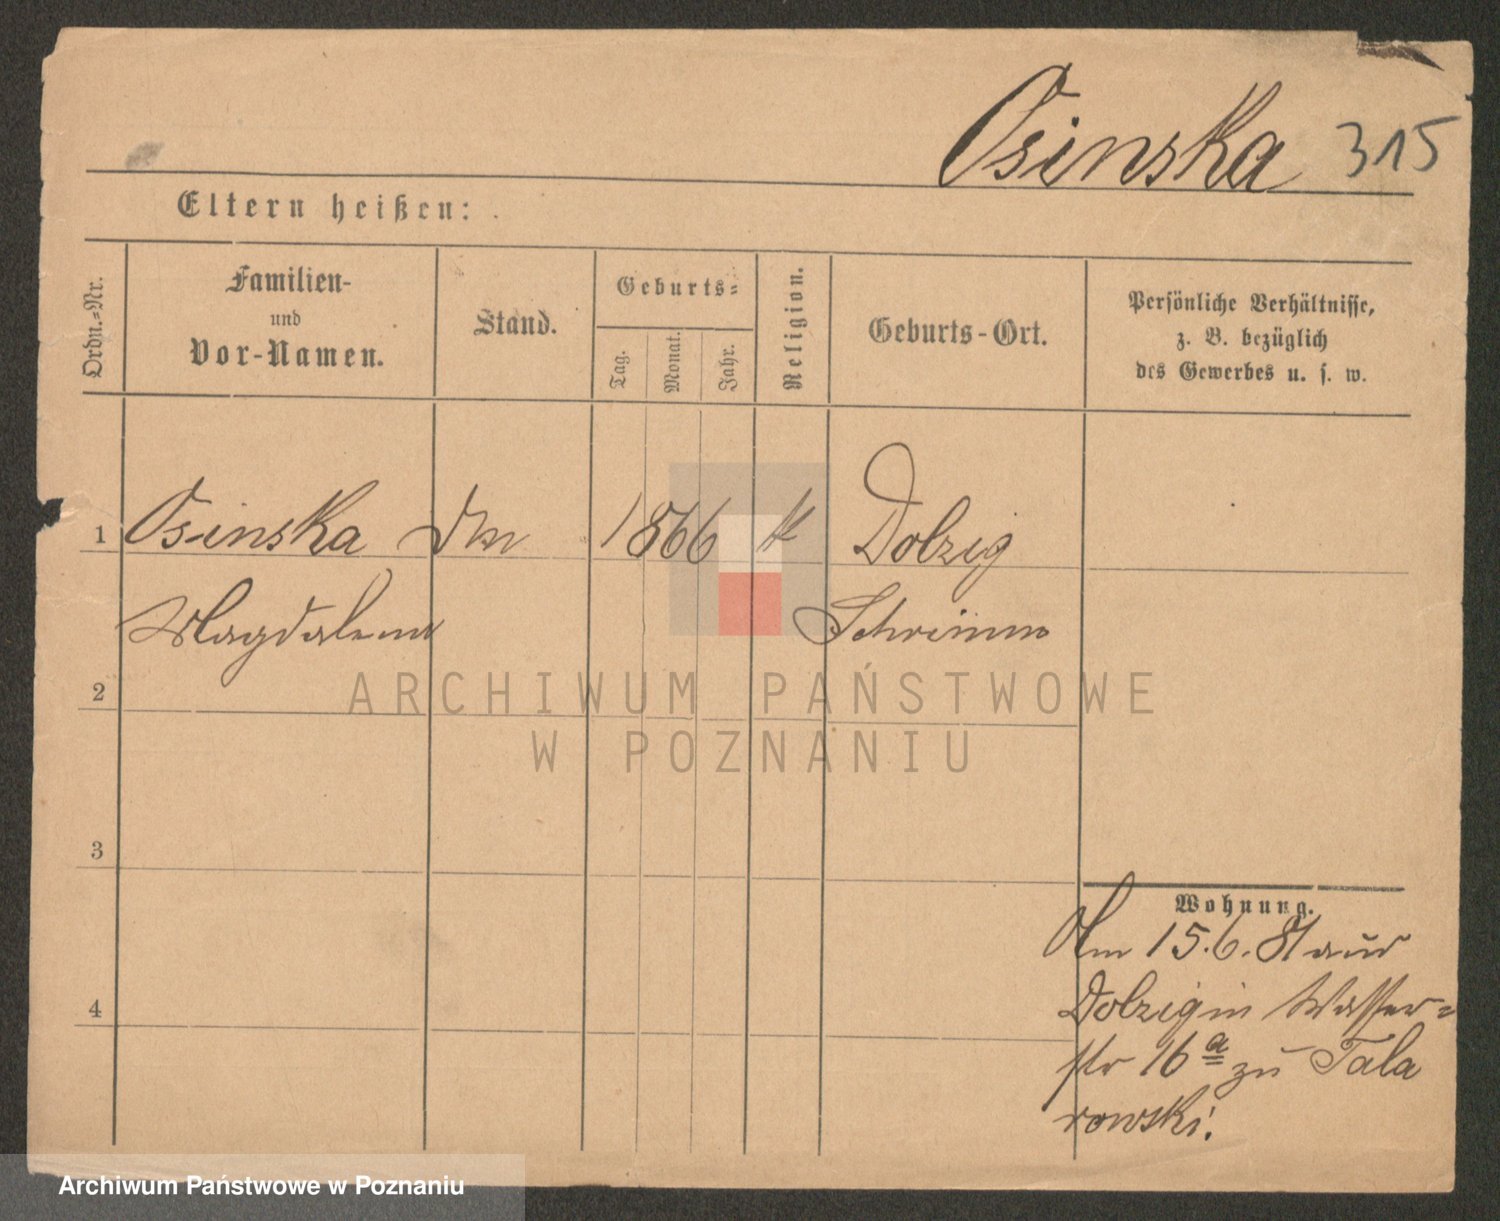 Osinska 315
Eltern heißen:
Ordn.-Nr.
Familien-
und
Vor-Namen.
Stand.
Geburts-
Tag.
Monat.
Jahr.
Religion.
Geburts-Ort.
Persönliche Verhältnisse,
z. B. bezüglich
des Gewerbes u. s. w.
1 Osinska 1866 k Dolzig
Magdalena Schrimm
2
3
4
Wohnung.
Am 15.6.81 aus
Dolzig in Wasser-
str 16a zu Tala
rowski.
ARCHIWUM PAŃSTWOWE
W POZNANIU
Archiwum Państwowe w Poznaniu